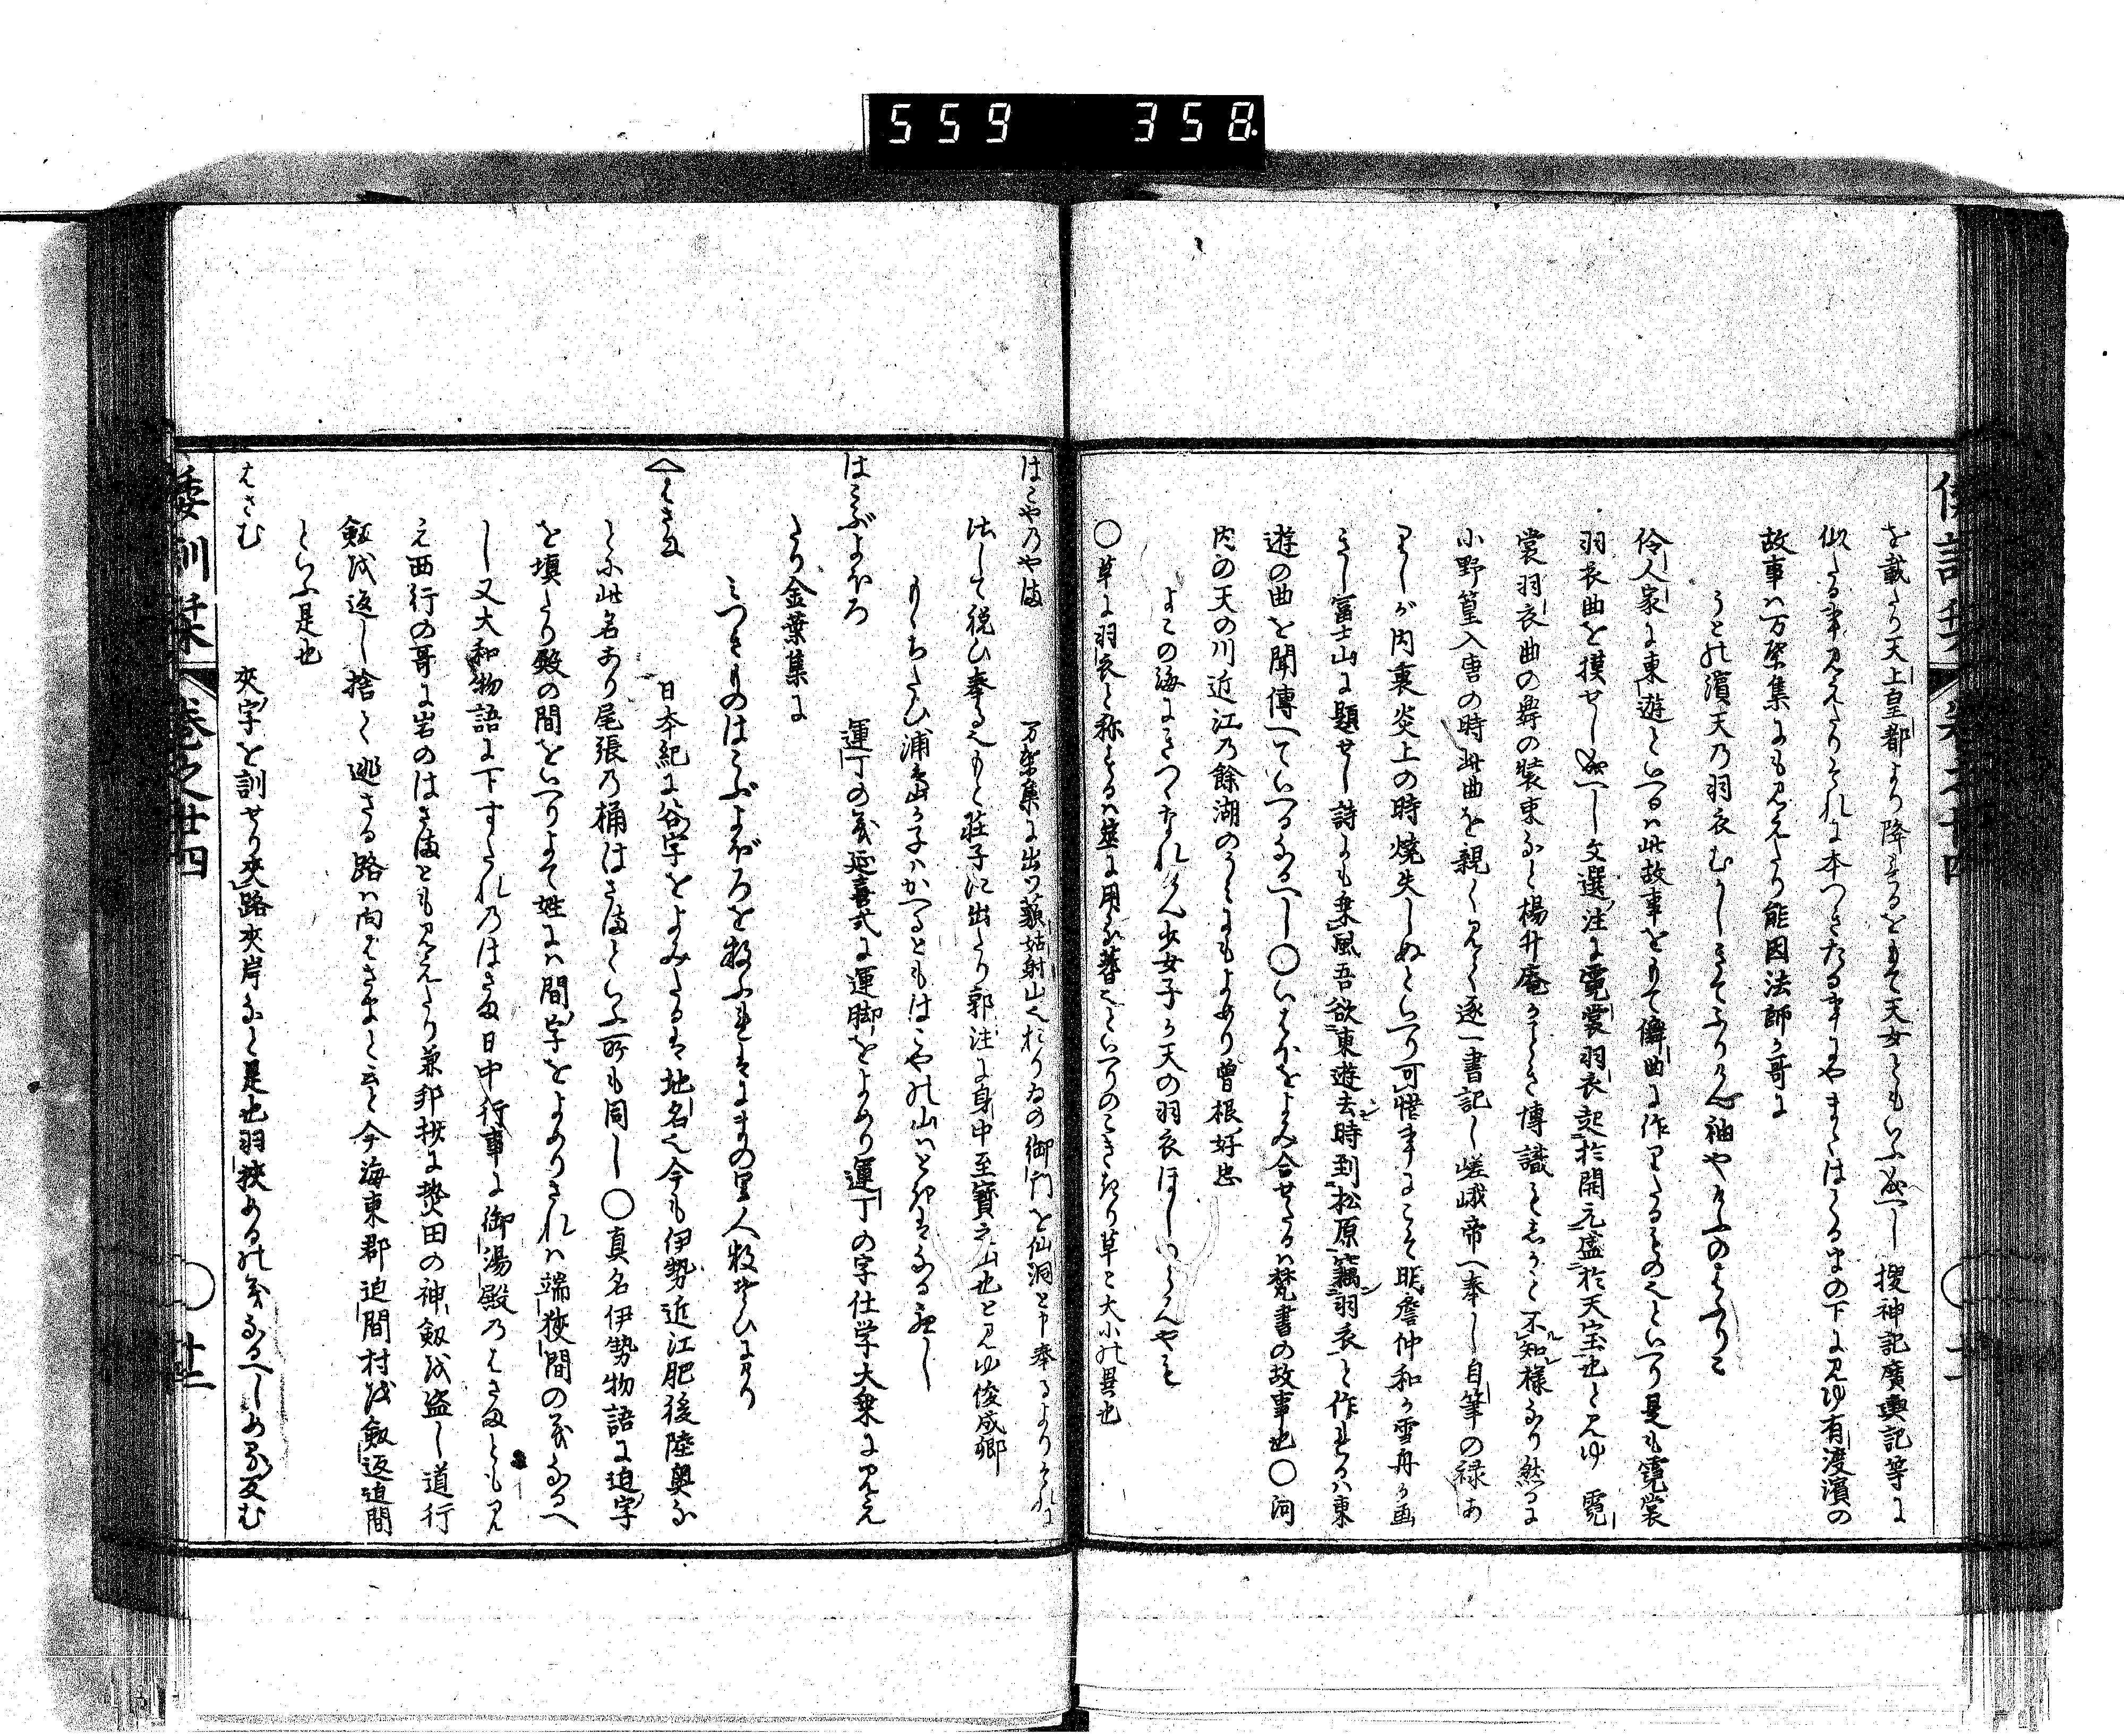 559 358
を載たり天上皇都より降れるをもて天女ともいふ歟へし 搜神記廣輿記等に
似たる事見えたりそれに本つきたる事にやまたはころもの下に見ゆ有渡濱の
故事ハ万葉集にも見えたり能因法師か哥に
うとの濱天の羽衣むかしきてふりけん袖やけふの
伶人家に東遊といへるハ此故事をもて舞曲に作りたるものといへり是も霓裳
羽衣曲を摸せし歟へし文選注に霓裳羽衣起於開元盛於天宝也と見ゆ 霓
裳羽衣曲の舞の装束なと楊升庵かことき博識も不知様なり然るに
小野篁入唐の時此曲を親く見て逐一書記し嵯峨帝へ奉りし自筆の禄あ
りしが内裏炎上の時燒失しぬといへり可惜事にこそ 詹仲和か雪舟か画
きし富士山に題せし詩にも乗風吾欲東遊去時到松原竊羽衣と作れるハ東
遊の曲を聞傳へていへるなるへし〇いはほをよみ合せたるハ梵書の故事也〇河
内の天の川近江の餘湖のうみにもよめり曽根好忠
よこの海にきつゝなれけん少女子か天の羽衣ほしつらんやそ
〇草に羽衣と称するハ 用る 也といへりのこきり草と大小の異也
はこやのやま 万葉集に出つ藐姑射山也おりゐの御門を仙洞と申奉るよりそれに
比して祝ひ奉る也もと荘子に出たり郭注に身中至寳之山也と見ゆ俊成卿
もゝちたひ浦島か子ハかへるともはこやの山ハときはなるへし
はこぶよほろ 運丁の義延喜式に運脚をよめり運丁の字仕学大乗に見え
たり金葉集に
みつきものはこぶよぼろを数ふれはにまの里人数そひにけり
〈はさま 日本紀に谷字をよみたるは地名也今も伊勢近江肥後陸奥な
とに此名あり尾張の桶はさまといふ所も同し〇真名伊勢物語に迫字
を填たり殿の間をいへりよて姓にハ間字をよめりされハ端狭間の義なるへ
し又大和物語に下すたれのはさま日中行事に御湯殿のはさまとも見
え西行の哥に岩のはさまとも見えたり兼邦抄に熱田の神釼を盗し道行
釼を返し捨て逃さる路ハ両はさまと云と今海東郡迫間村を釼返迫間
といふ是也
はさむ 夾字を訓せり夾路夾岸なと是也羽狭めるの義なるへしめる反む
倭訓栞 巻之廿四 〇廿二